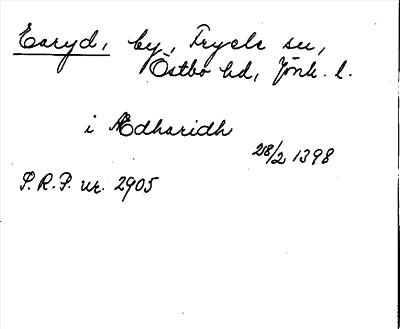 Earyd, by, Tryele su,
Östbo hd, Jönk. l.
i Ædharidh
28/2 1398
P.R.P. nr. 2905